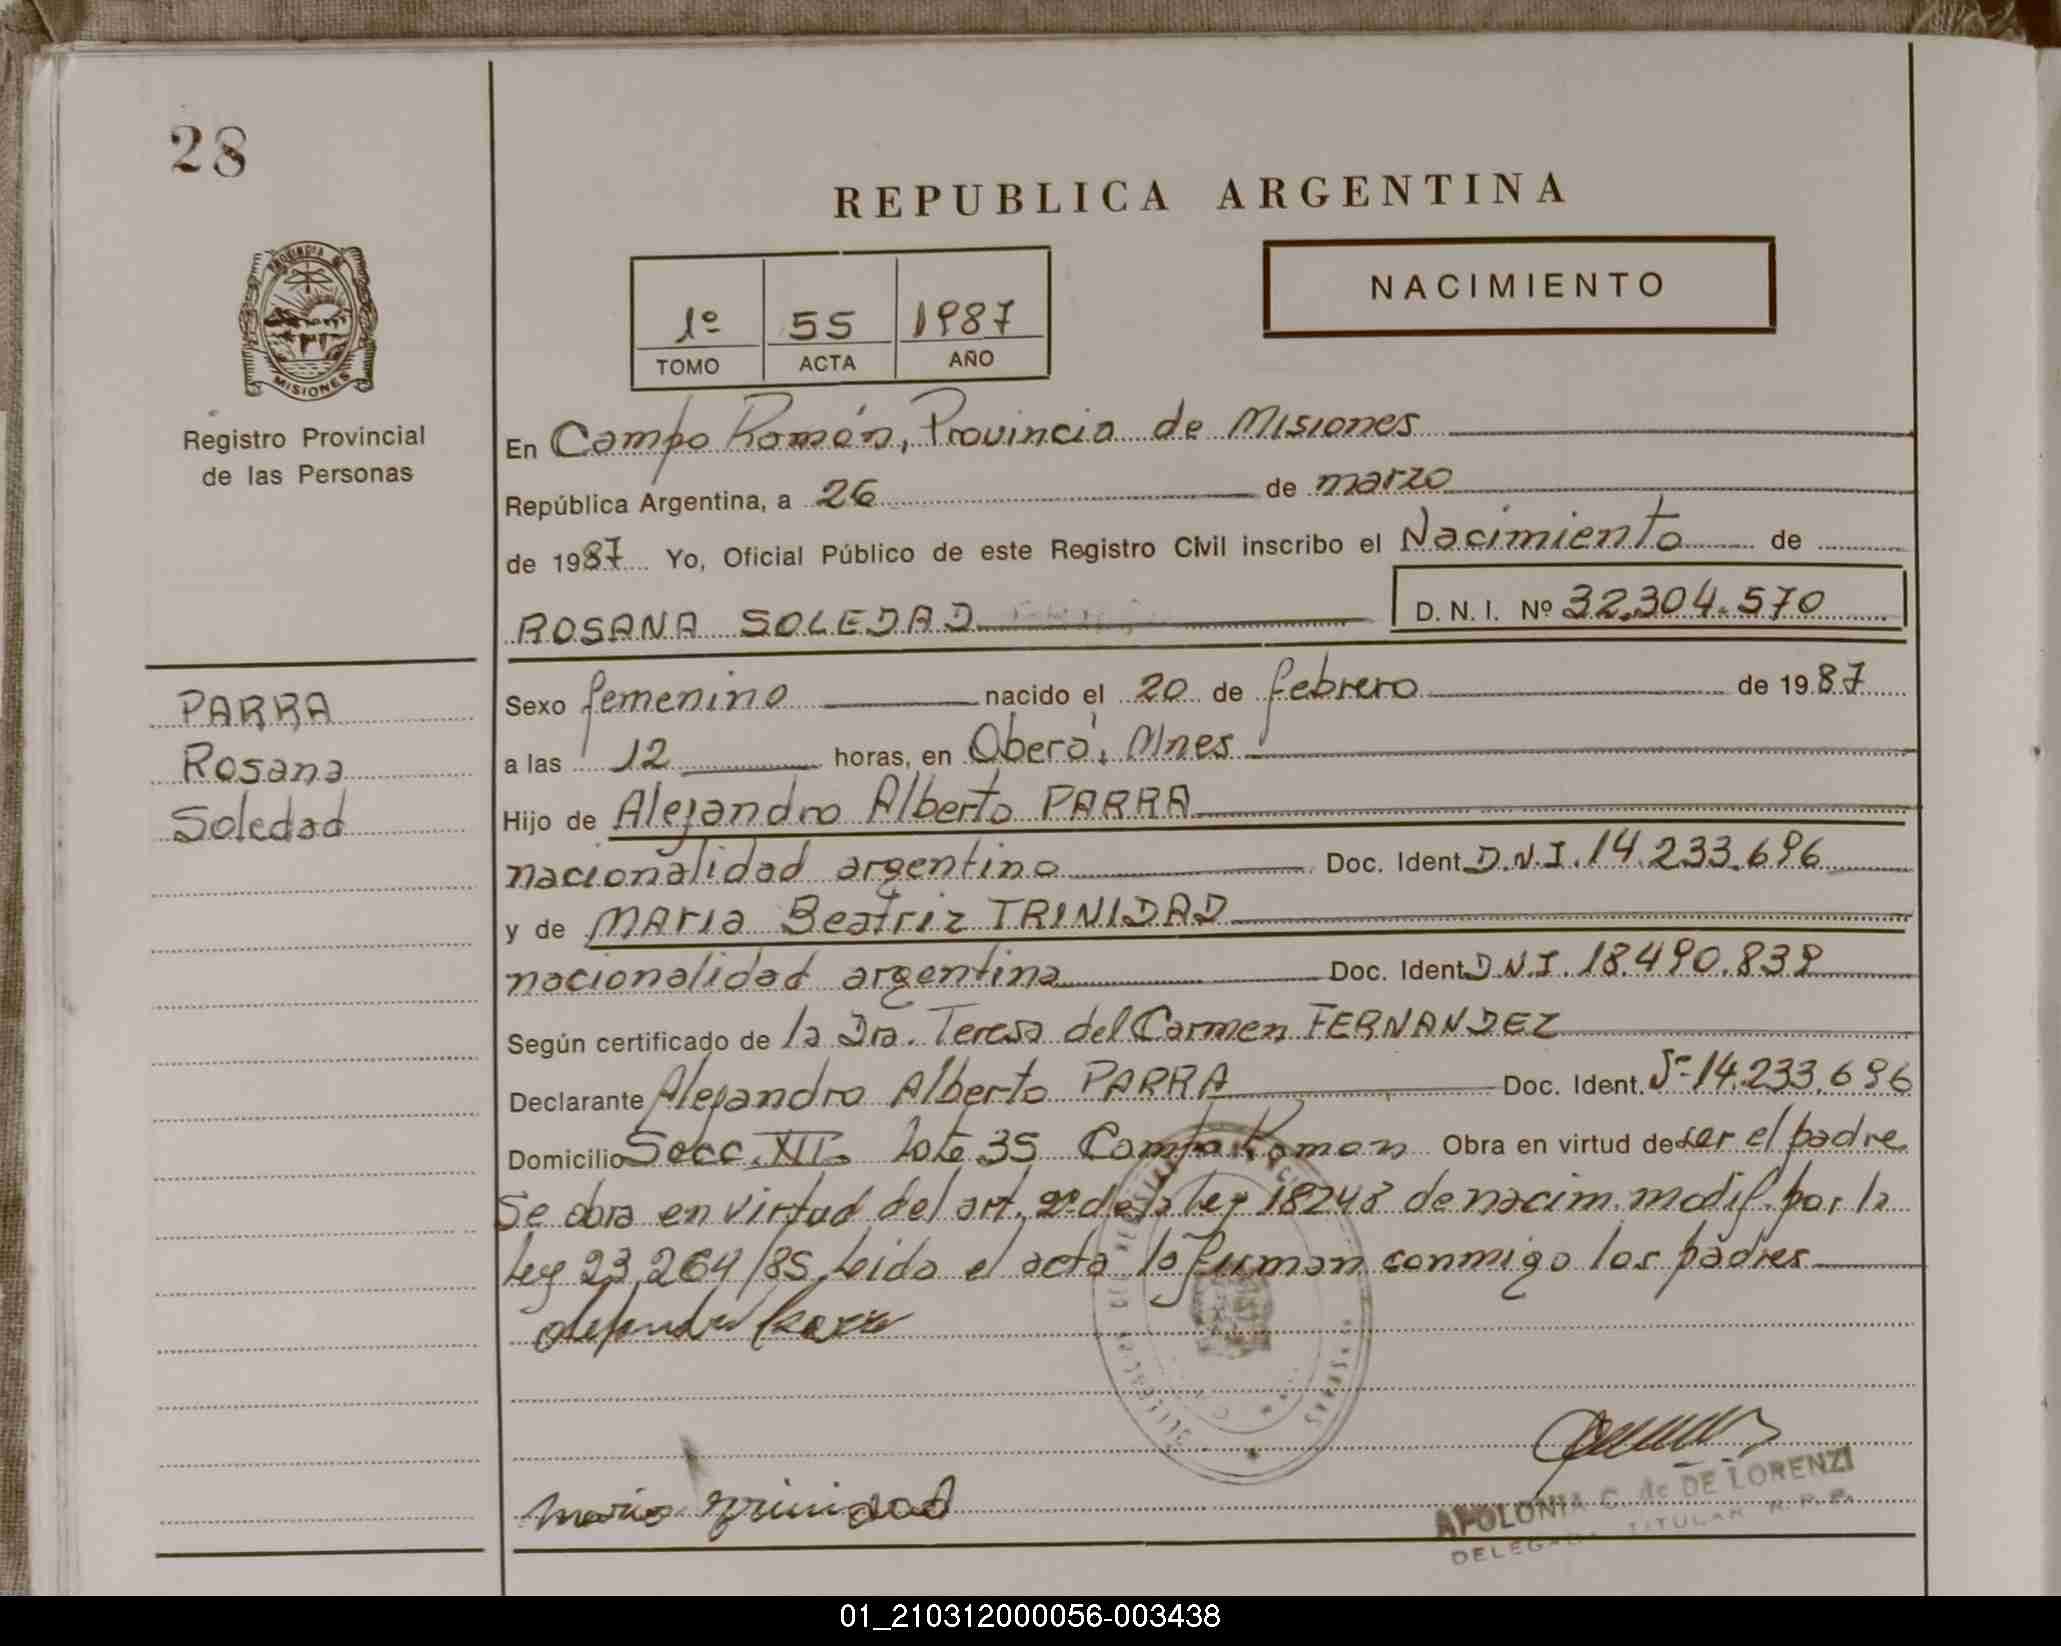 28
REPUBLICA ARGENTINA
NACIMIENTO
1º 55 1987
TOMO ACTA AÑO
PROVINCIA DE
MISIONES
Registro Provincial
de las Personas
En Campo Ramón, Provincia de Misiones
República Argentina, a 26 de marzo
de 1987 Yo, Oficial Público de este Registro Civil inscribo el Nacimiento de
ROSANA SOLEDAD D.N.I. Nº 32.304.570
PARRA
Rosana
Soledad
Sexo femenino nacido el 20 de febrero de 1987
a las 12 horas, en Oberá, Mnes
Hijo de Alejandro Alberto PARRA
nacionalidad argentino Doc. Ident D.N.I. 14.233.696
y de MARIA Beatriz TRINIDAD
nacionalidad argentina Doc. Ident D.N.I. 18.490.839
Según certificado de la Dra. Teresa del Carmen FERNANDEZ
Declarante Alejandro Alberto PARRA Doc. Ident. 14.233.696
Domicilio Secc. XII. Lote 35 Campo Ramon Obra en virtud de ser el padre
Se obra en virtud del art. 2º de la ley 18248 de nacim. modif. por la
Ley 23.264/85. Leida el acta la firman conmigo los padres
Alejandro Parra
Maria Trinidad
APOLONIA C. de DE LORENZI
DELEGADA TITULAR R.P.P.
01_210312000056-003438